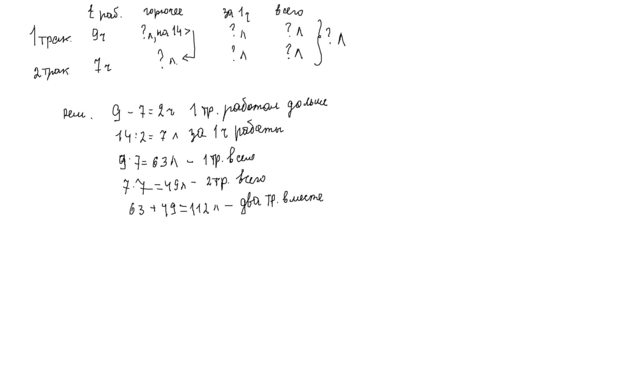 t раб. горючее за 1ч всего
1 трак. 9ч ?л, на 14 > ?л ?л ?л
2 трак 7ч ?л. ?л ?л
Реш. 9 - 7 = 2ч 1 тр. работал дольше
14 : 2 = 7 л за 1ч работы
9 · 7 = 63л - 1 тр. всего
7 · 7 = 49л - 2 тр. всего
63 + 49 = 112 л - два тр. вместе